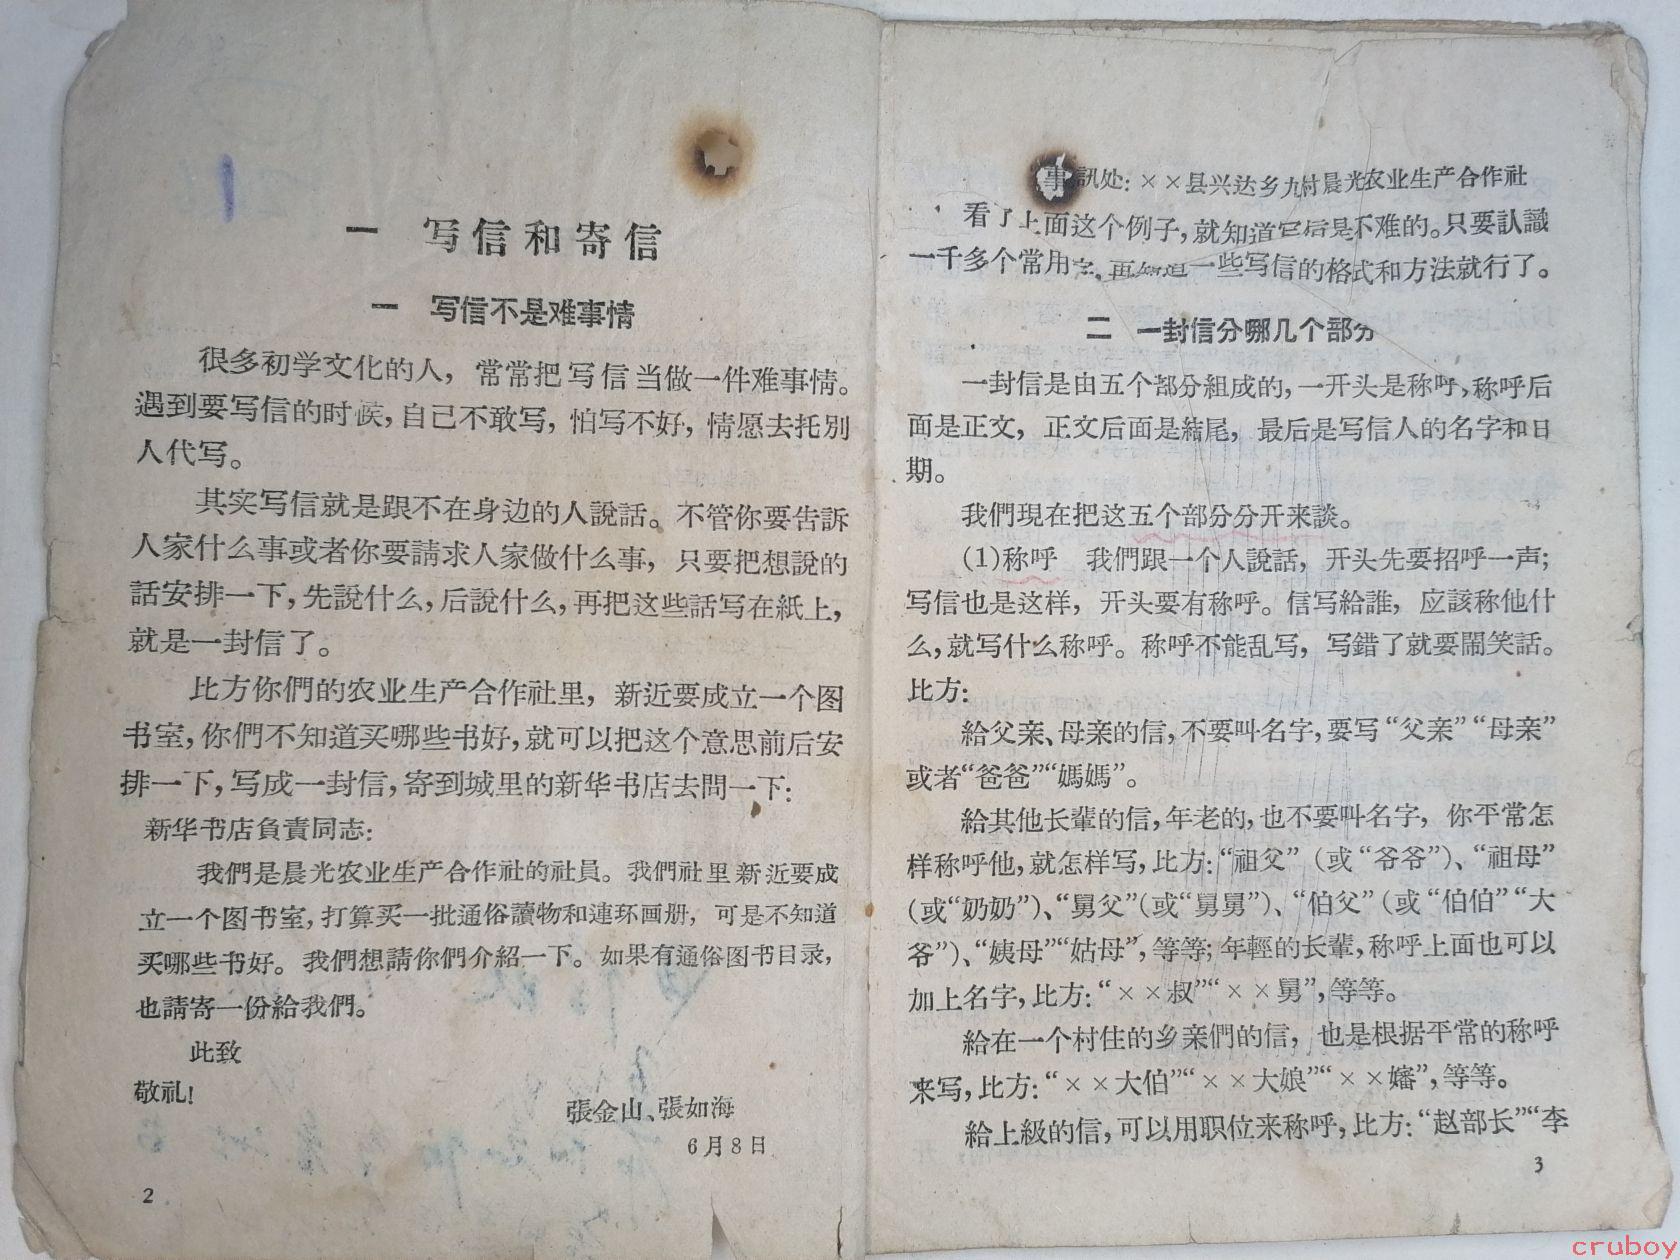 一 写信和寄信
一 写信不是难事情
很多初学文化的人，常常把写信当做一件难事情。
遇到要写信的时候，自己不敢写，怕写不好，情愿去托別
人代写。
其实写信就是跟不在身边的人說話。不管你要告訴
人家什么事或者你要請求人家做什么事，只要把想說的
話安排一下，先說什么，后說什么，再把这些話写在紙上，
就是一封信了。
比方你們的农业生产合作社里，新近要成立一个图
书室，你們不知道买哪些书好，就可以把这个意思前后安
排一下，写成一封信，寄到城里的新华书店去問一下：
新华书店負責同志：
我們是晨光农业生产合作社的社員。我們社里新近要成
立一个图书室，打算买一批通俗讀物和連环画册，可是不知道
买哪些书好。我們想請你們介紹一下。如果有通俗图书目录，
也請寄一份給我們。
此致
敬礼！
張金山、張如海
6月8日
2
訊处：××县兴达乡九村晨光农业生产合作社
看了上面这个例子，就知道写信是不难的。只要認識
一千多个常用字，再知道一些写信的格式和方法就行了。
二 一封信分哪几个部分
一封信是由五个部分組成的，一开头是称呼，称呼后
面是正文，正文后面是結尾，最后是写信人的名字和日
期。
我們現在把这五个部分分开来談。
(1)称呼 我們跟一个人說話，开头先要招呼一声；
写信也是这样，开头要有称呼。信写給誰，应該称他什
么，就写什么称呼。称呼不能乱写，写錯了就要鬧笑話。
比方：
給父亲、母亲的信，不要叫名字，要写“父亲”“母亲”
或者“爸爸”“媽媽”。
給其他长輩的信，年老的，也不要叫名字，你平常怎
样称呼他，就怎样写，比方：“祖父”（或“爷爷”）、“祖母”
（或“奶奶”）、“舅父”（或“舅舅”）、“伯父”（或“伯伯”“大
爷”）、“姨母”“姑母”，等等；年輕的长輩，称呼上面也可以
加上名字，比方：“××叔”“××舅”，等等。
給在一个村住的乡亲們的信，也是根据平常的称呼
来写，比方：“××大伯”“××大娘”“××嬸”，等等。
給上級的信，可以用职位来称呼，比方：“赵部长”“李
3
cruboy